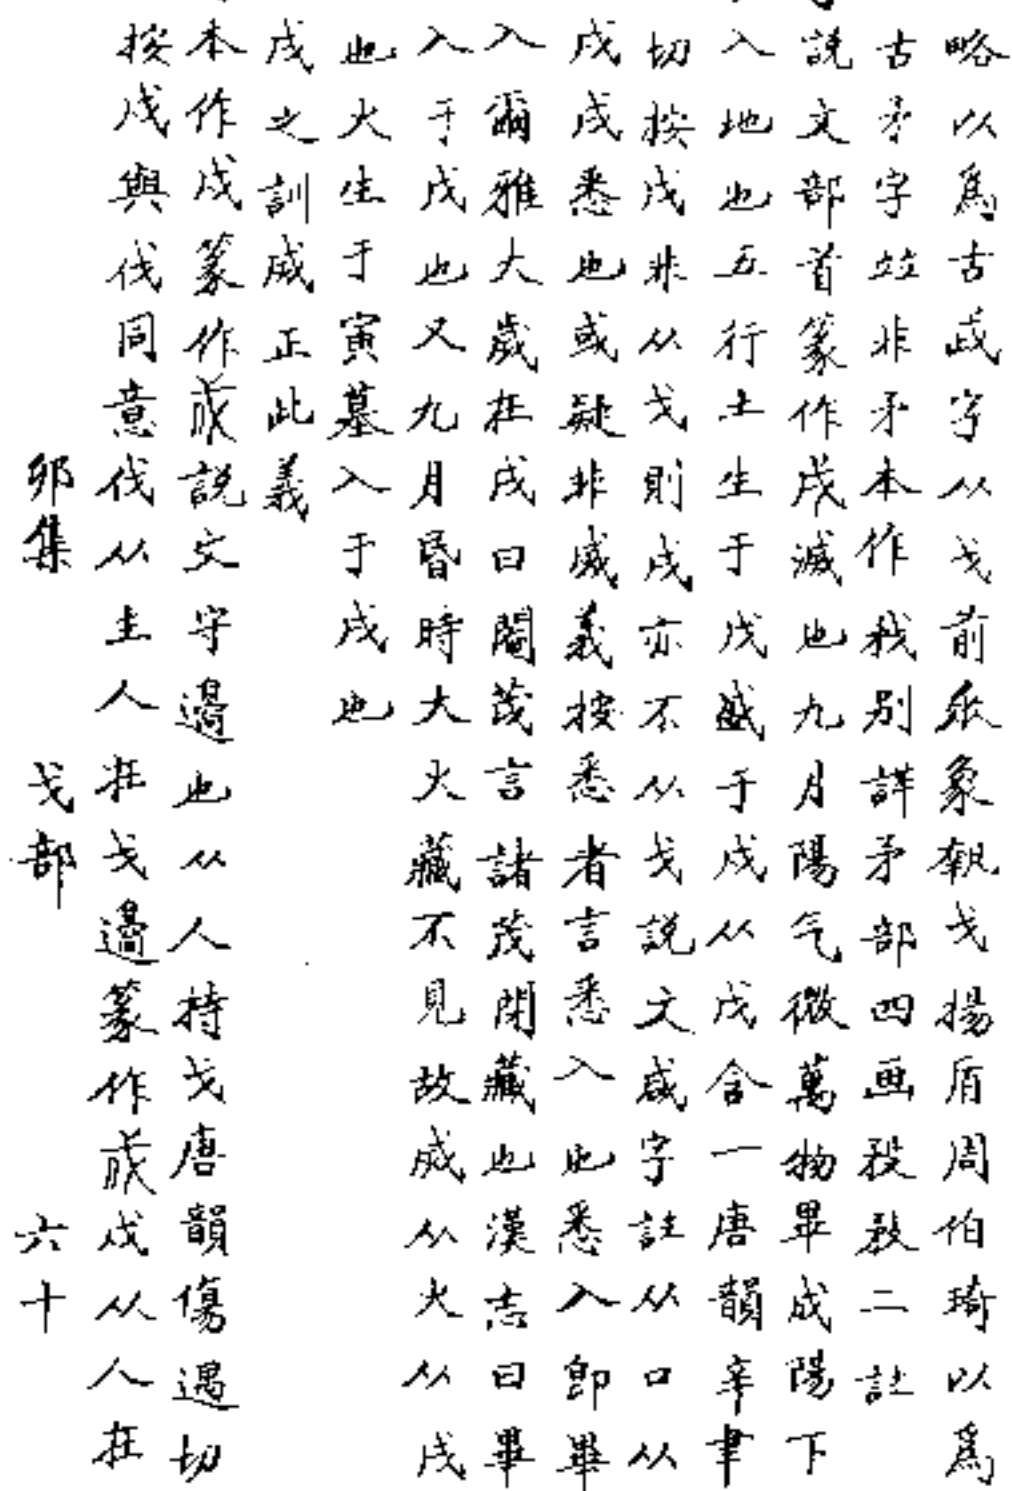 略以爲古戉字从戈前永象執戈揚盾周伯琦以爲
古矛字竝非矛本作𢦧別詳矛部四画殺敄二註
説文部首篆作戌滅也九月陽气微萬物畢成陽下
入地也五行土生于戊盛于戌从戊含一唐韻辛聿
切按戌非从戈則戌亦不从戈説文咸字註从口从
戌戌悉也或疑非威義按悉者言悉入也悉入卽畢
入爾雅大歲在戌曰閹茂言諸茂閉藏也漢志曰畢
入于戌也又九月昏時大火藏不見故烕从火从戌
也火生于寅墓入于戌也
戌之訓威正此義
本作戍篆作說文守邊也从人持戈唐韻傷遇切
按戍與伐同意伐从主人在戈邊篆作戍从人在
卯集 戈部 六十